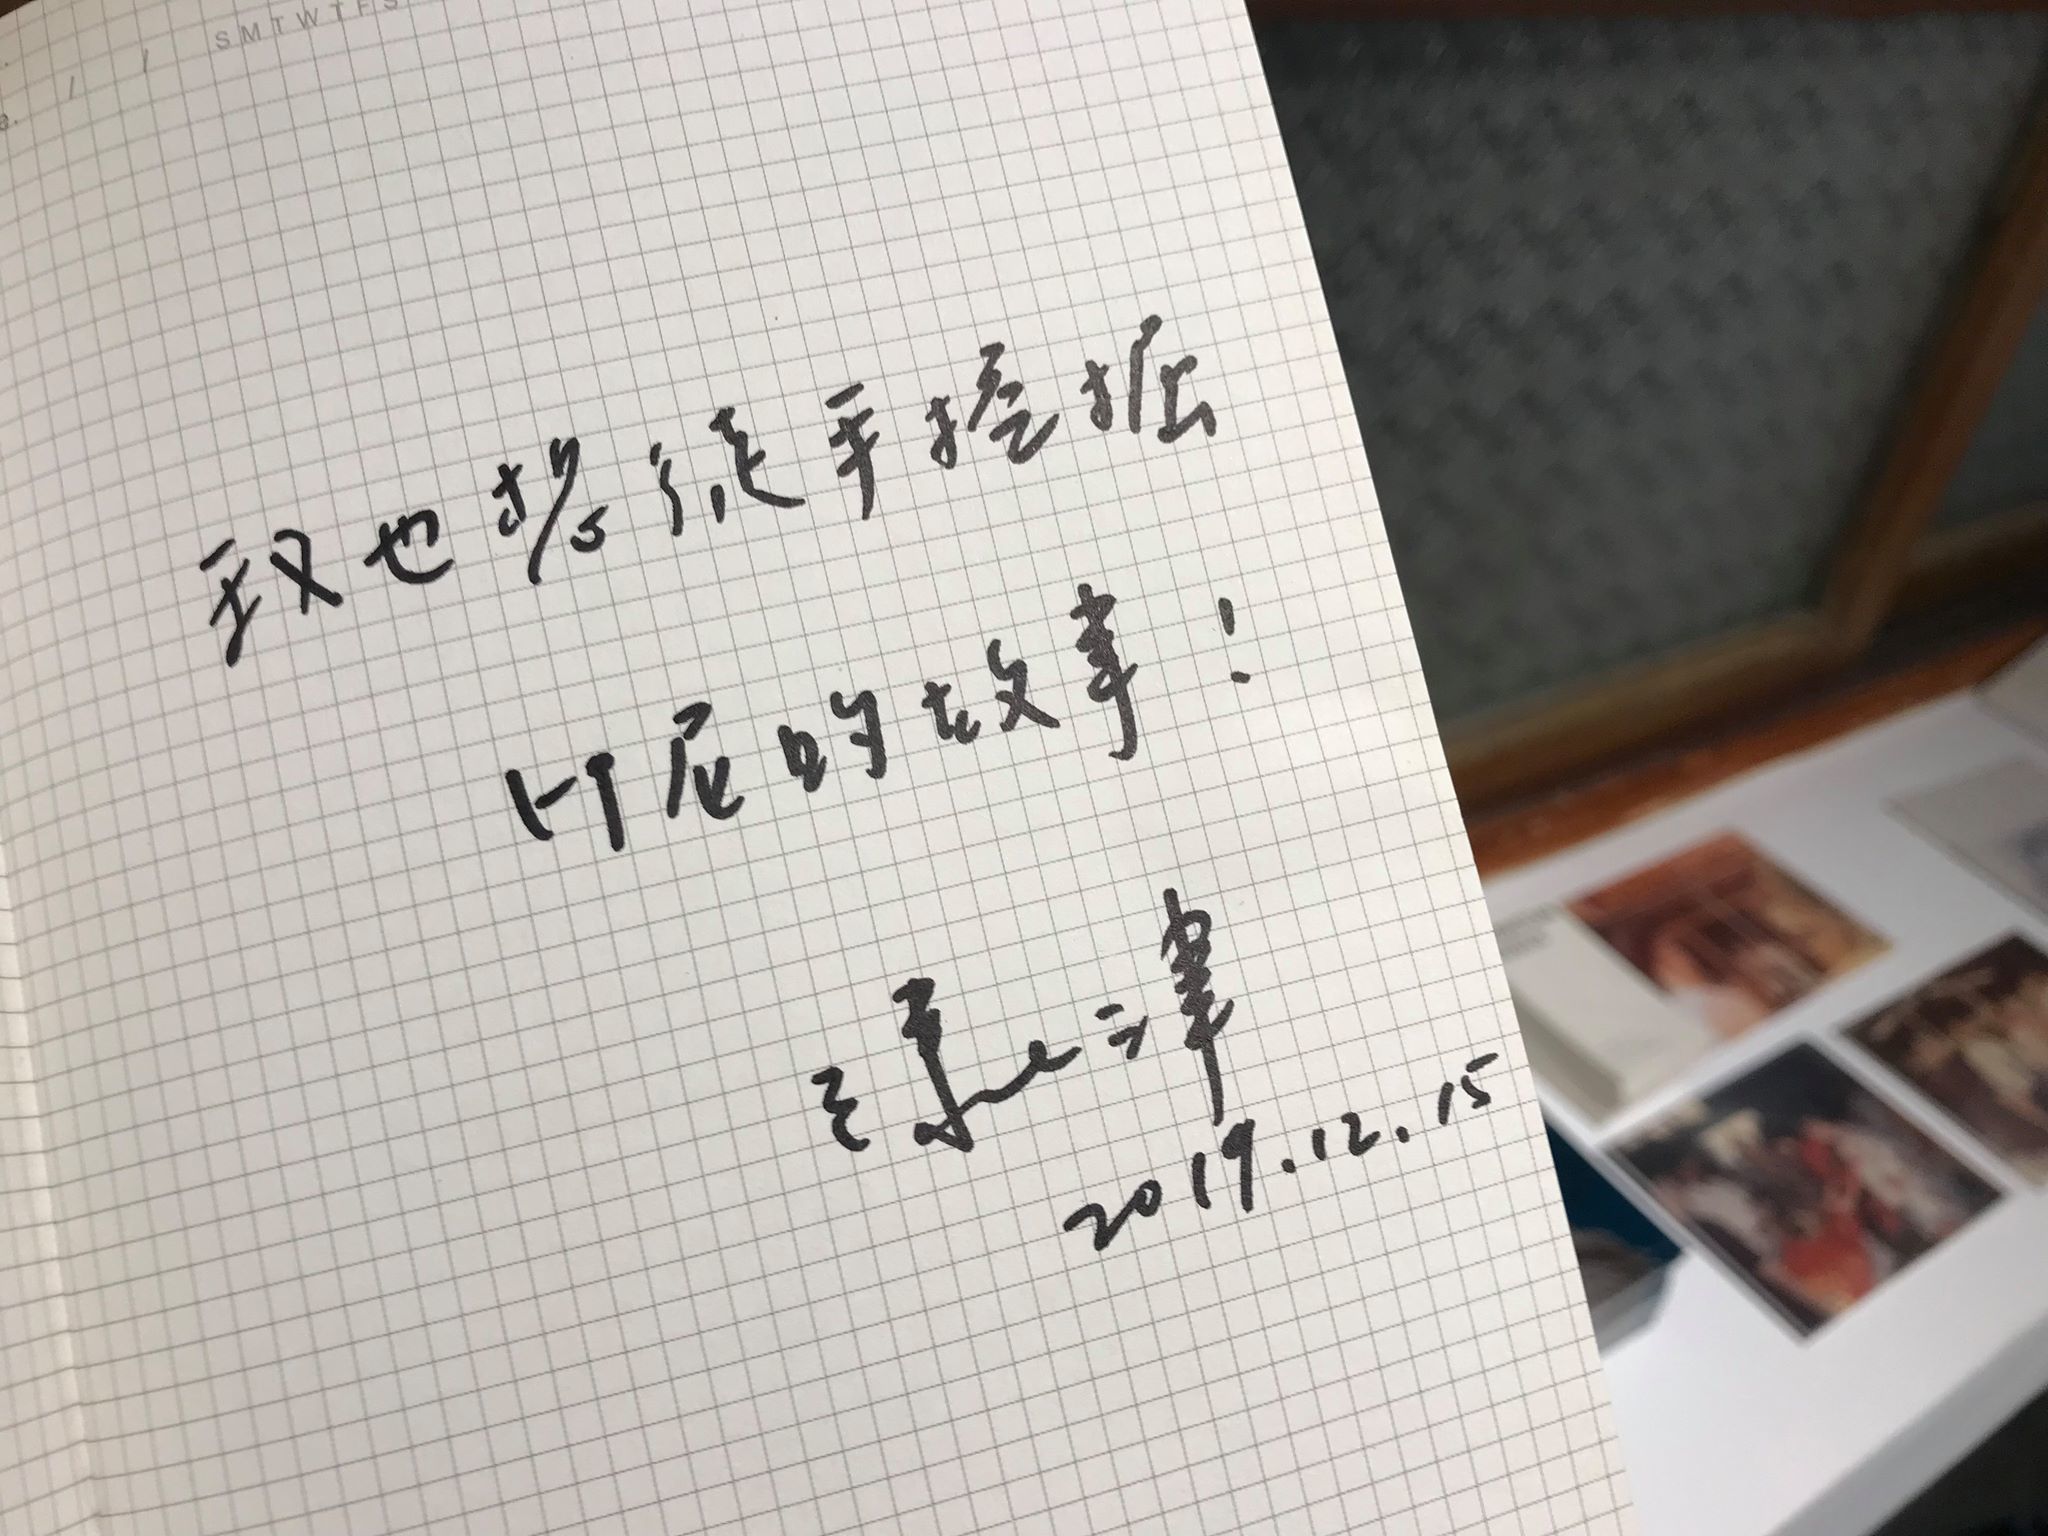 SMTWTFS
我也想徒手挖掘
印尼的故事！
2019.12.15